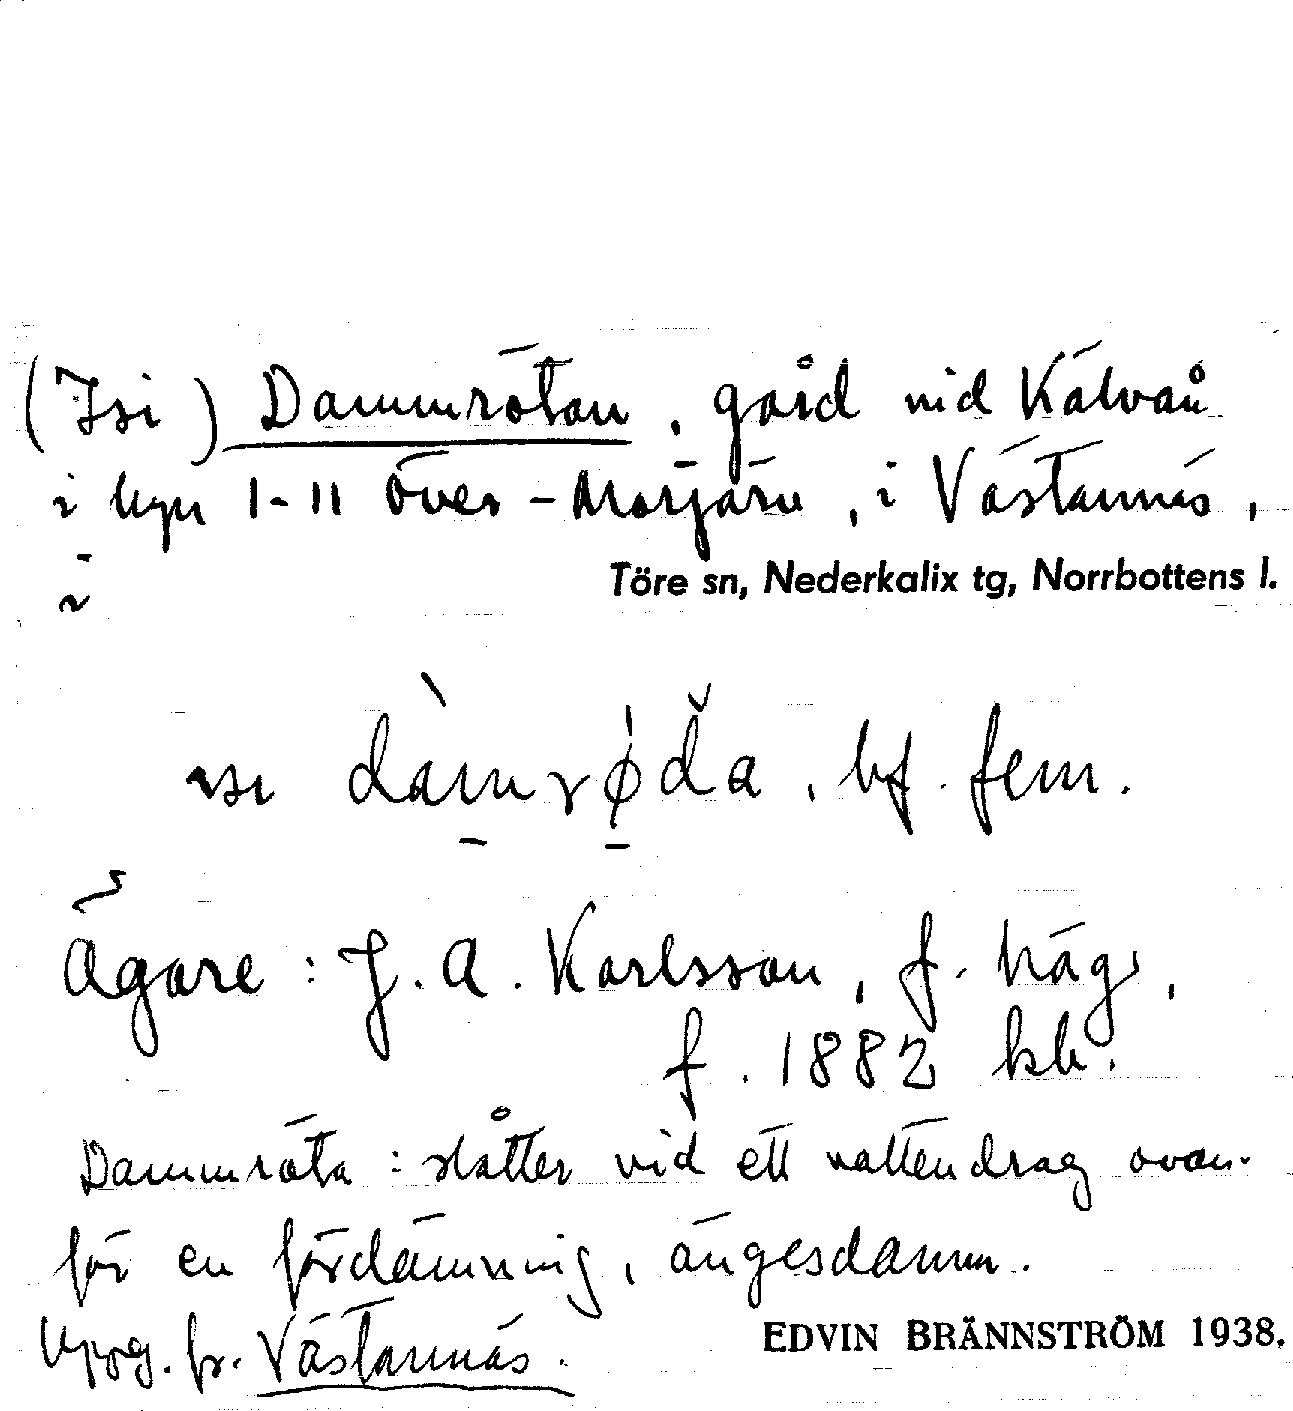 (Isi) Dammrötan, gård vid Kälvån
i byn 1-11 Över-Morjärv, i Västannäs,
i
Töre sn, Nederkalix tg, Norrbottens l.
dàmrøda, bf. fem.
Ägare: J. A. Karlsson, f. häg,
f. 1882 kb.
Dammröta: slåtter vid ett vattendrag ovan-
för en fördämning, ängesdamm.
Uppg. fr. Västannäs.
EDVIN BRÄNNSTRÖM 1938.